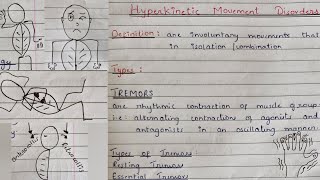 Hyperkinetic Movement Disorders
Definition: are involuntary movements that
in isolation/combination
Types:
TREMORS
are rhythmic contraction of muscle groups
i.e. alternating contraction of agonists and
antagonists in an oscillating manner
Types of Tremors
Resting Tremor
Essential Tremor